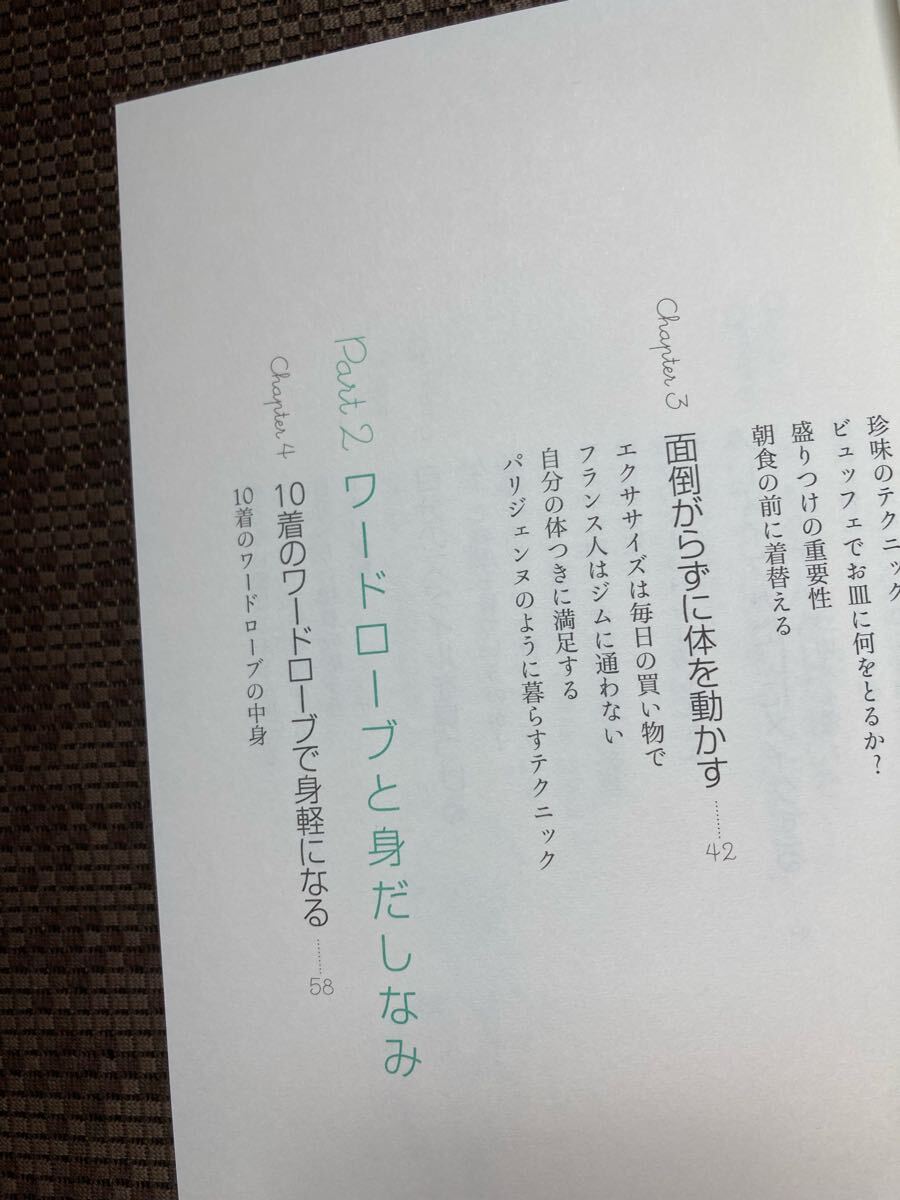 珍味のテクニック
ビュッフェでお皿に何をとるか?
盛りつけの重要性
朝食の前に着替える
Chapter 3 面倒がらずに体を動かす………42
エクササイズは毎日の買い物で
フランス人はジムに通わない
自分の体つきに満足する
パリジェンヌのように暮らすテクニック
Part 2 ワードローブと身だしなみ
Chapter 4 10着のワードローブで身軽になる………58
10着のワードローブの中身